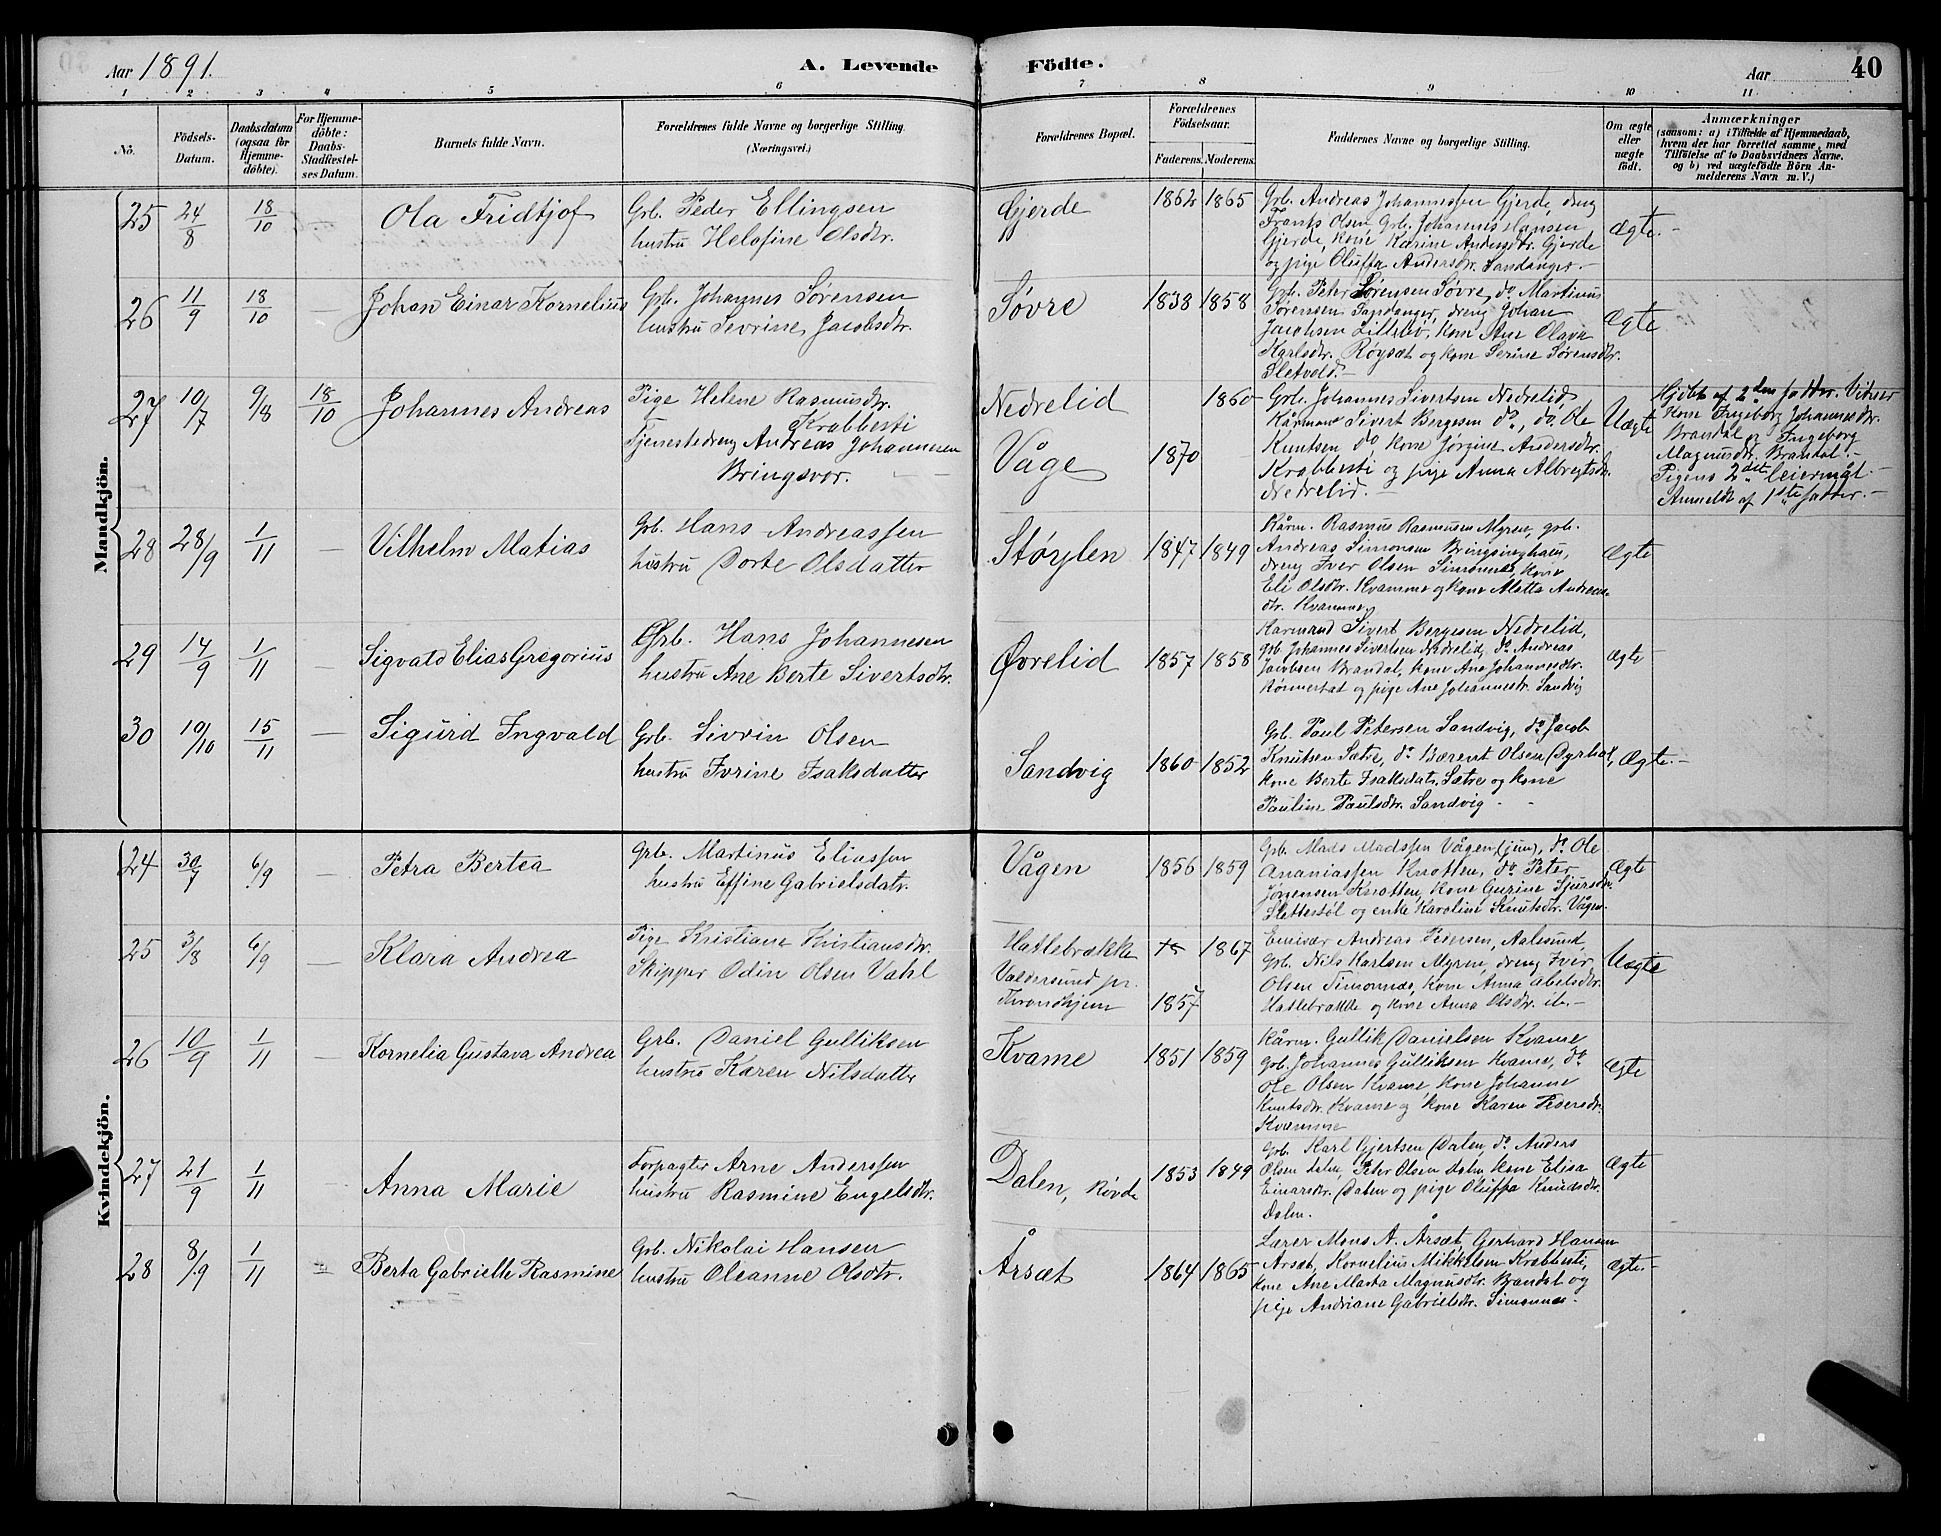 Aar 1891.
A. Levende Födte.
Aar
40
1 2 3 4 5 6 7 8 9 10 11
No.
Födsels-
Datum.
Daabsdatum
(ogsaa for
Hjemme-
döbte).
For Hjemme-
döbte:
Daabs-
Stadfæstel-
ses Datum.
Barnets fulde Navn.
Forældrenes fulde Navne og borgerlige Stilling.
(Næringsvei.)
Forældrenes Bopæl.
Forældrenes
Födselsaar.
Faderens. Moderens.
Faddernes Navne og borgerlige Stilling.
Om ægte
eller
uægte
født.
Anmærkninger
(saasom: a) i Tilfælde af Hjemmedaab,
hvem der har forrettet samme, med
Tilföielse af to Daabsvidners Navne,
og b) ved uægtefödte Börn An-
melderens Navn m. V.)
Mandkjön.
25 24/8 18/10 — Ola Fridtjof
Grb. Peder Ellingsen
hustru Helofine Olsdtr.
Gjerde 1862 1865
Grb. Andreas Johannessen Gjerde, dreng
Frants Olsen, Grb. Johannes Hansen
Gjerde, kone Karine Andersdtr. Gjerde
og pige Oluffa Andersdtr. Sandanger. —
Ægte. —
26 11/9 18/10 — Johan Einar Kornelius
Grb. Johannes Sörensen
hustru Sevrine Jacobsdtr.
Søvre 1838 1858
Grb. Peter Sørensen Søvre, do Martinus
Sørensen Sandanger, dreng Johan
Jacobsen Lillebø, kone Ane Olava
Karlsdtr. Røysæt og kone Serine Sørensdtr.
Sletvold.
Ægte
27 10/7 9/8 18/10 Johannes Andreas
Pige Helene Rasmusdtr.
Krabbesti
Tjenestedreng Andreas Johannesen
Bringsvor. — —
Nedrelid 1860
Våge 1870 —
Grb. Johannes Sivertsen Nedrelid,
Kårmand Sivert Bergesen do, do. Ole
Knutsen do, kone Jørgine Andersdtr.
Krabbesti og pige Anna Albregtsdtr.
Nedrelid. —
Uægte
Hjdbt. af 2den fadder. Vidner
kone Ingeborg Johannesdtr.
Brandal og Ingeborg
Magnusdtr. Brandal. —
Pigens 2det leiermål. —
Anmeldt af 1ste fadder. —
28 28/9 1/11 — Vilhelm Matias
Grb. Hans Andreassen
hustru Dorte Olsdatter
Støylen 1847 1849
Kårm. Rasmus Rasmusen Myren, grb.
Andreas Simonsen Bringsinghaug,
dreng Iver Olsen Simonnes, kone
Eli Olsdtr. Kvamme og kone Matta Andreas-
dtr. Kvamme
Ægte
29 14/9 1/11 — Sigvald Elias Gregorius
Grb. Hans Johannesen
hustru Ane Berte Sivertsdtr.
Øvrelid 1857 1858
Karmand Sivert Bergesen Nedrelid,
Grb. Johannes Sivertsen Nedrelid, do Andreas
Jacobsen Brandal, kone Ane Johannesdtr.
Rønnestad og pige Ane Johannesdtr. Sandvig
Ægte —
30 10/10 15/11 — Sigurd Ingvald
Grb. Sivrin Olsen
hustru Ivrine Isaksdatter
Sandvig 1860 1852
Grb. Paul Petersen Sandvig, do Jacob
Knutsen Sætre, do Bærent Olsen Dyrhol,
kone Berte Isaksdatr. Sætre og kone
Pauline Paulsdtr. Sandvig. —
Ægte. —
Kvindekjön.
24 30/7 6/9 — Petra Bertea
Grb. Martinus Eliassen
hustru Effine Gabrielsdatr.
Vågen 1856 1859
Grb. Mads Madssen Vågen (jun), do Ole
Ananiassen Knotten, do Peter
Jørgensen Knotten, kone Gurine Sjursdtr.
Slettestøl og enke Karoline Knutsdtr. Vågen.
Ægte
25 3/8 6/9 — Klara Andrea
Pige Kristiane Kristiansdtr.
Skipper Odin Olsen Vahl
Hatlebrække 1867
Valdersund pr.
Throndhjem 1857
Emisær Andreas Pedersen, Aalesund,
Grb. Nils Karlsen Myren, dreng Iver
Olsen Simonnæs, kone Anna Abelsdtr.
Hatlebrække og kone Anna Olsdtr. ib. —
Uægte
26 10/9 1/11 — Kornelia Gustava Andrea
Grb. Daniel Gulliksen
hustru Karen Nilsdatter
Kvame 1851 1859
Kårm. Gullik Danielsen Kvame
Grb. Johannes Gulliksen Kvame, do
Ole Olsen Kvame kone Johanne
Knutsdtr. Kvame og kone Karen Pedersdtr.
Kvamme
Ægte
27 21/9 1/11 — Anna Marie
Forpagter Arne Anderssen
hustru Rasmine Engelsdtr.
Dalen, Røvde 1853 1849
Grb. Karl Gjertsen Dalen, do Anders
Olsen Dalen, Peter Olsen Dalen kone Elisa
Einarsdtr. Dalen og pige Oluffa Knudsdtr.
Dalen.
Ægte
28 8/9 1/11 — Berta Gabrielle Rasmine
Grb. Nikolai Hansen
hustru Oleanne Olsdtr.
Årsæt 1864 1865
Lærer Mons A. Årsæt, Gerhard Hansen
Årsæt, Kornelius Mikkelsen Krabbesti,
kone Ane Marta Magnusdtr. Brandal og
pige Andriane Gabrielsdtr. Simonnes.
Ægte. —